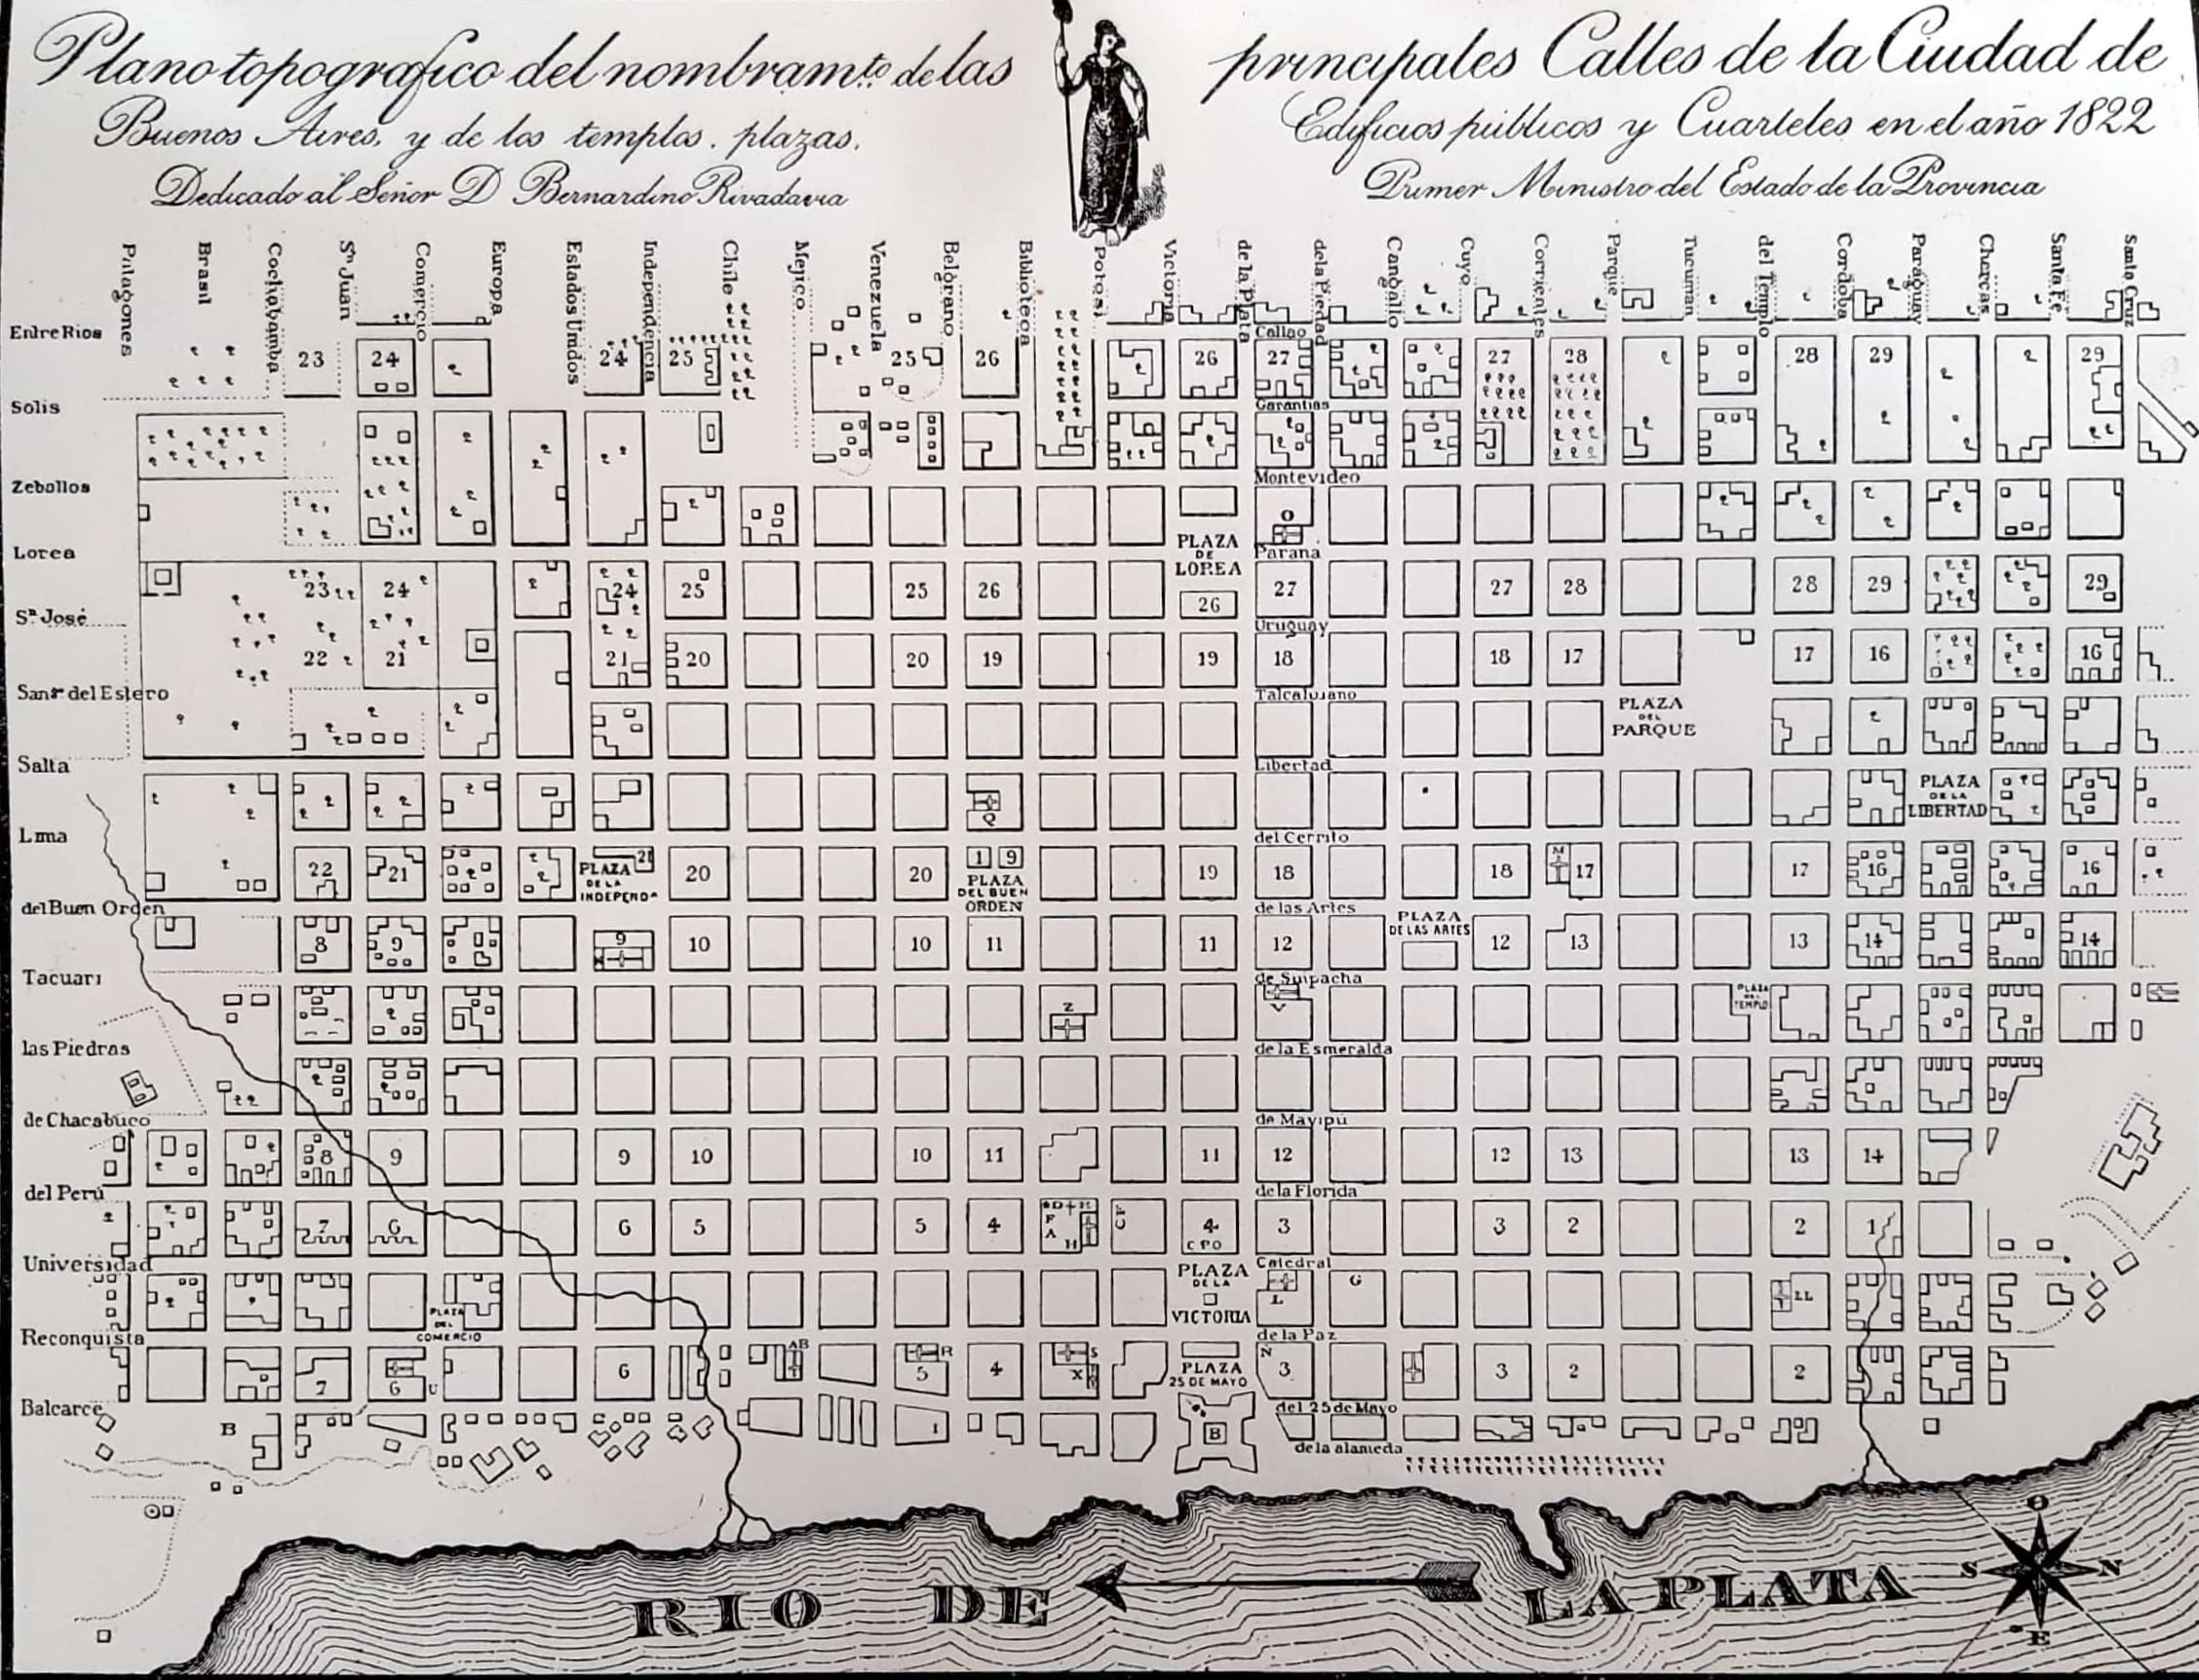 Plano topografico del nombram.to de las principales Calles de la Ciudad de
Buenos Aires, y de los templos. plazas, Edificios públicos y Cuarteles en el año 1822
Dedicado al Señor D Bernardino Rivadavia Primer Ministro del Estado de la Provincia
Patagones
Brasil
Cochabamba
Sn Juan
Comercio
Europa
Estados Unidos
Independencia
Chile
Mejico
Venezuela
Belgrano
Biblioteca
Potosi
Victoria
de la Plata
de la Piedad
Cangallo
Cuyo
Corrientes
Parque
Tucuman
del Templo
Cordoba
Paraguay
Charcas
Santa Fe
Santa Cruz
Entre Rios
Callao
23 24 24 25 25 26 26 27 27 28 28 29 29
Solis
Garantias
Zeballos
Montevideo
O
Lorea
PLAZA
DE
LOREA
Parana
23 24 24 25 25 26 26 27 27 28 28 29 29
Sn José
Uruguay
22 21 21 20 20 19 19 18 18 17 17 16 16
Sango del Estero
Talcaluano
PLAZA
DEL
PARQUE
Salta
Libertad
Q
PLAZA
DE LA
LIBERTAD
Lima
del Cerrito
22 21 21 20 20 1 9 19 18 18 M 17 17 16 16
PLAZA
DE LA
INDEPENDA
PLAZA
DEL BUEN
ORDEN
del Buen Orden
de las Artes
PLAZA
DE LAS ARTES
8 9 9 10 10 11 11 12 12 13 13 14 14
Tacuari
de Suipacha
Z
V
PLAZA
DEL
TEMPLO
las Piedras
de la Esmeralda
de Chacabuco
de Mayipú
8 9 9 10 10 11 11 12 12 13 13 14
del Perú
de la Florida
7 6 6 5 5 4 4 3 3 2 2 1
F
A
H
CPO
Universidad
Catedral
PLAZA
DE LA
VICTORIA
L
G
LL
PLAZA
DEL
COMERCIO
Reconquista
de la Paz
7 6 U 6 AB 5 R 4 S X Ñ 3 3 2 2
PLAZA
25 DE MAYO
Balcarce
del 25 de Mayo
B I B
de la alameda
RIO DE LA PLATA
O
S N
E